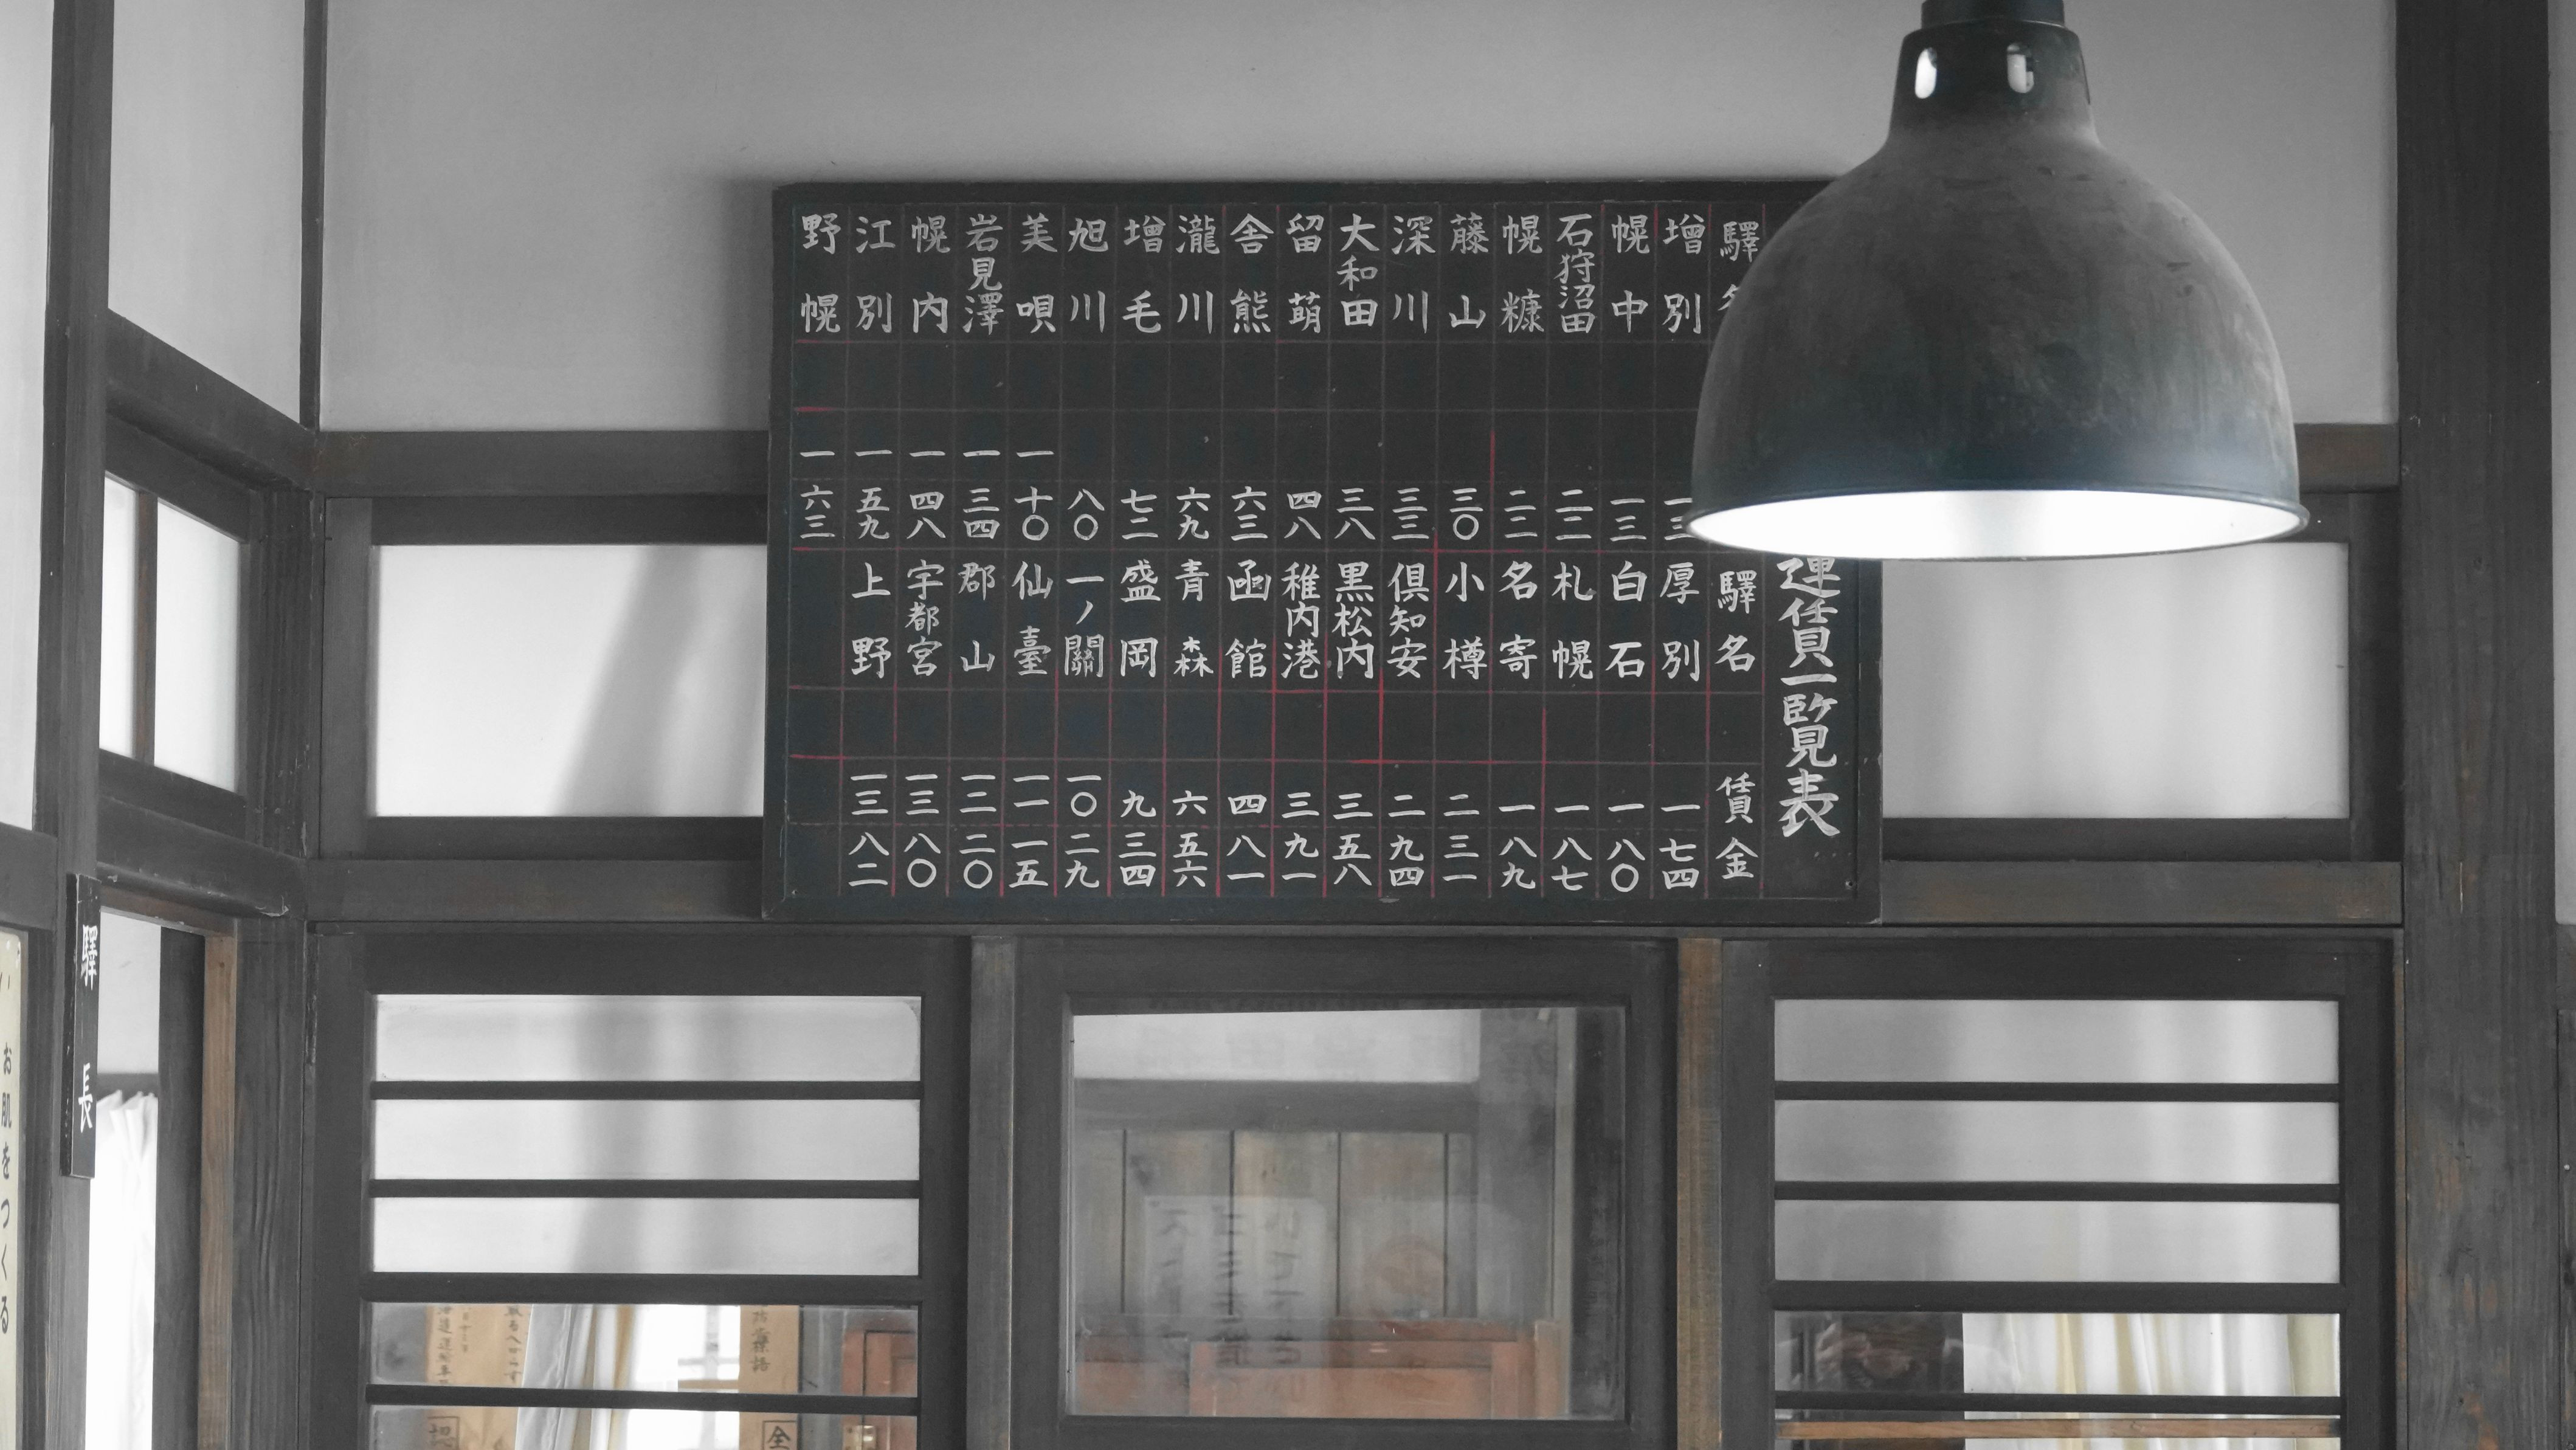 運賃一覧表
驛
増別 一三
幌中 一三
石狩沼田 二二
幌糠 二二
藤山 三〇
深川 三三
大和田 三八
留萌 四八
舎熊 六三
瀧川 六九
増毛 七二
旭川 八〇
美唄 一 十〇
岩見澤 一 三四
幌内 一 四八
江別 一 五九
野幌 一 六三
驛名 賃金
厚別 一 七四
白石 一 八〇
札幌 一 八七
名寄 一 八九
小樽 二 三一
倶知安 二 九四
黒松内 三 五八
稚内港 三 九一
函館 四 八一
青森 六 五六
盛岡 九 三四
一ノ關 一〇 二九
仙臺 一一 一五
郡山 一二 二〇
宇都宮 一三 八〇
上野 一三 八二
驛長
お肌をつくる
全